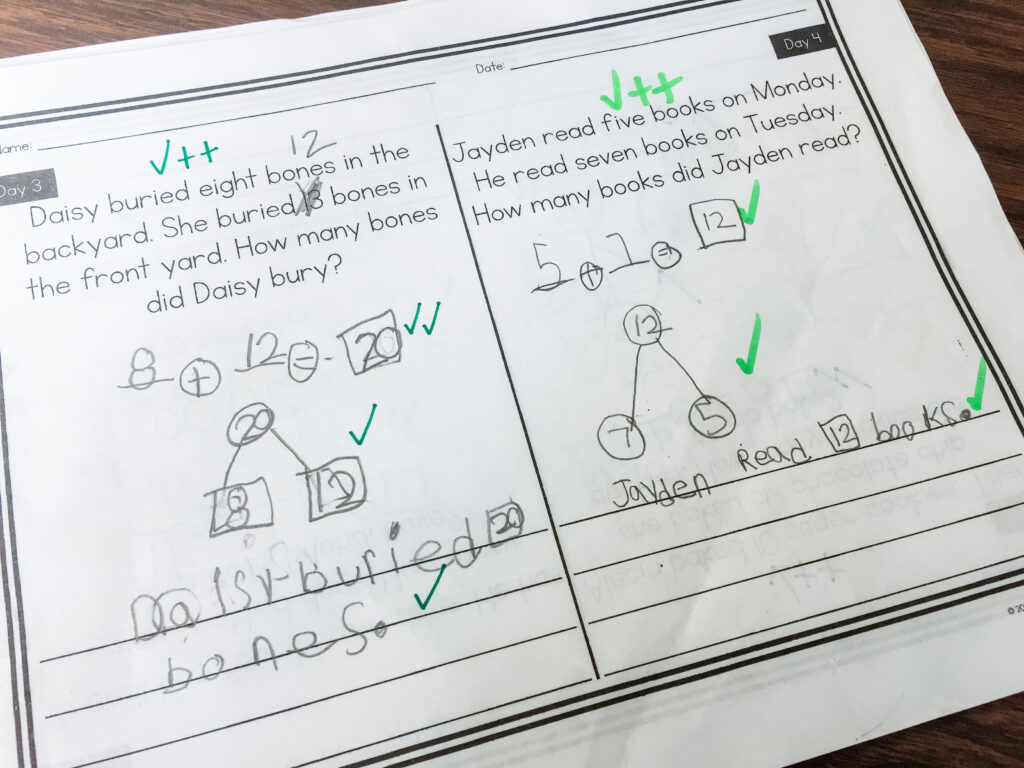 ame:
Day 3
✓++
12
Daisy buried eight bones in the
backyard. She buried bones in
the front yard. How many bones
did Daisy bury?
8 + 12 = 20 ✓✓
20 ✓
8 12
Daisy buried 20
bones. ✓
Date:
Day 4
✓++
Jayden read five books on Monday.
He read seven books on Tuesday.
How many books did Jayden read?
5 + 7 = 12 ✓
12
✓
7 5
Jayden Read 12 books. ✓
© 20